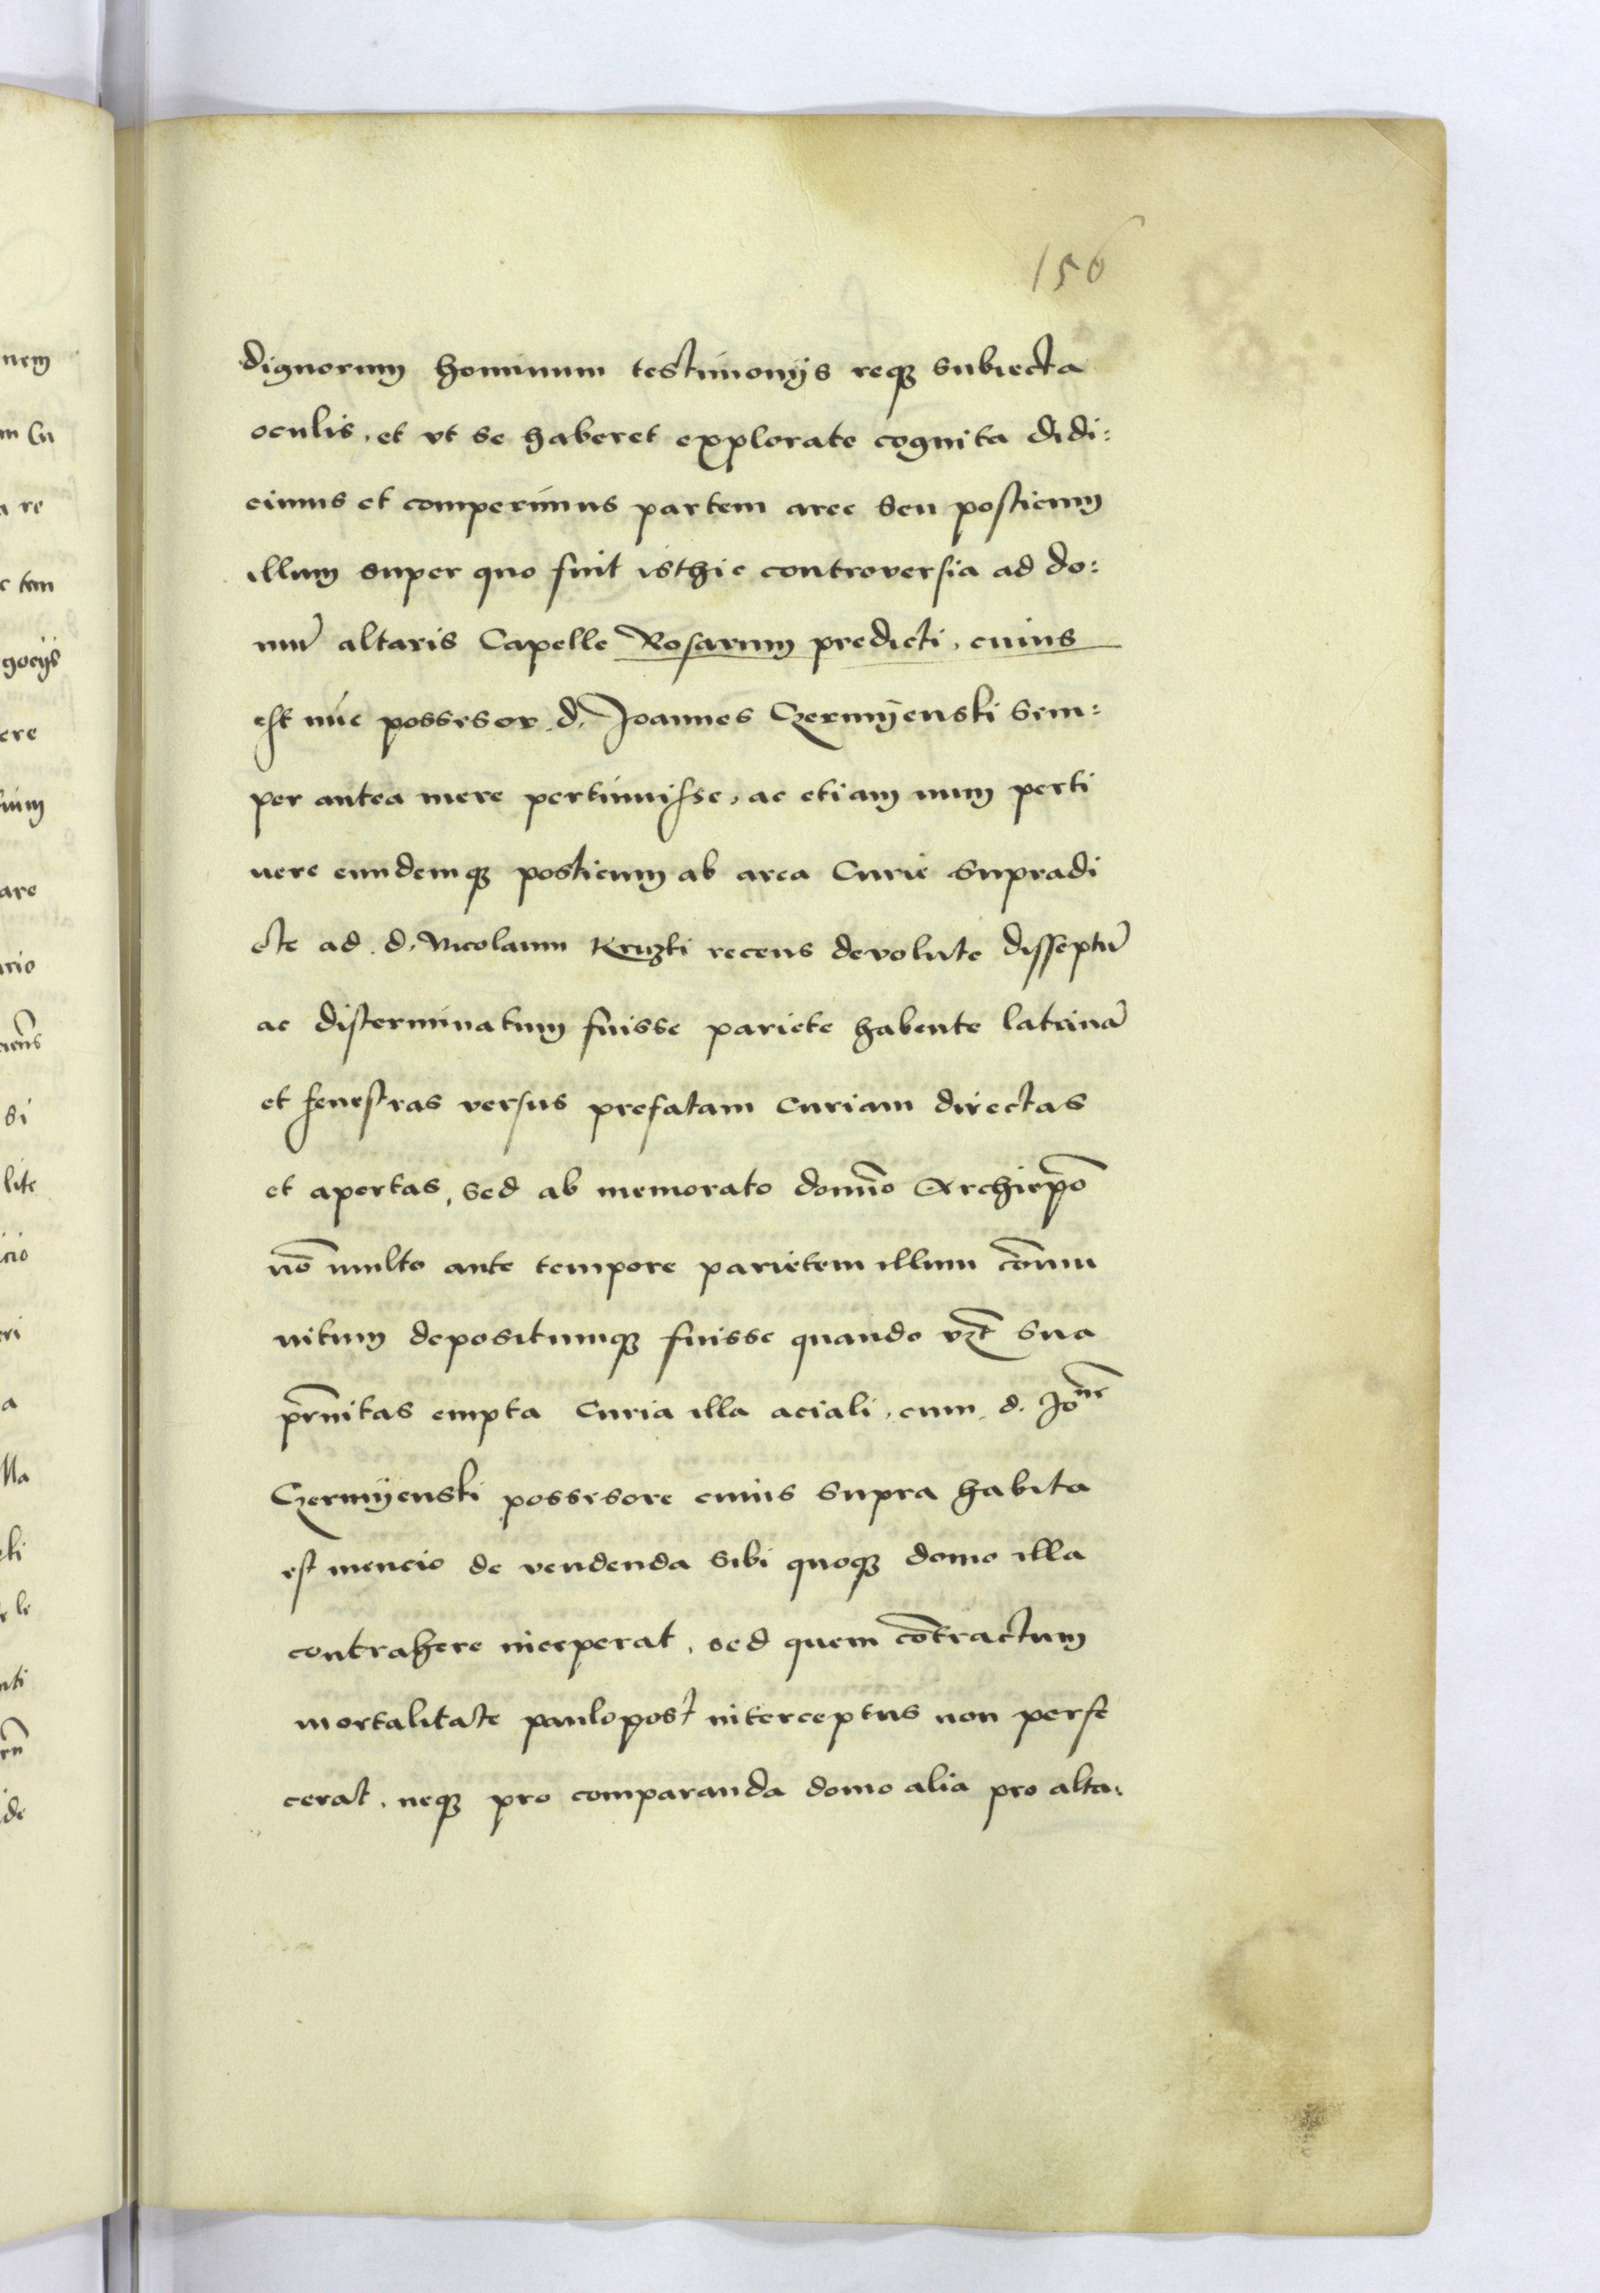 156
dignorum hominum testimonijs reqꝫ subiecta
oculis, et vt se haberet explorate cognita didi:
cimus et comperimus partem aree seu posticum
illum super quo fuit isthic controversia ad do:
mū altaris Capelle Rosarum predicti, cuius
est nūc possesor d. Joannes Czermÿenski Sem:
per antea mere pertinuisse, ac etiam num perti
nere eundemqꝫ posticum ab area Curie Supradi
cte ad d. Nicolaum recens devolute disseptū
ac disterminatum fuisse pariete habente latrinā
et fenestras versus prefatam curiam directas
et apertas, sed ab memorato domīo Archiepō
nō multo ante tempore parietem illum cōmu
nitum depositumqꝫ fuisse quando vꝫt Sua
prñitas empta Curia illa aciali, cum d. Joñe
Czermÿenski possesore cuius supra habita
est mencio de vendenda sibi quoqꝫ domo illa
contrahere inceperat, sed quem cōtractum
mortalitate paulopost interceptus non perfe
cerat, neqꝫ pro comparanda domo alia pro alta: